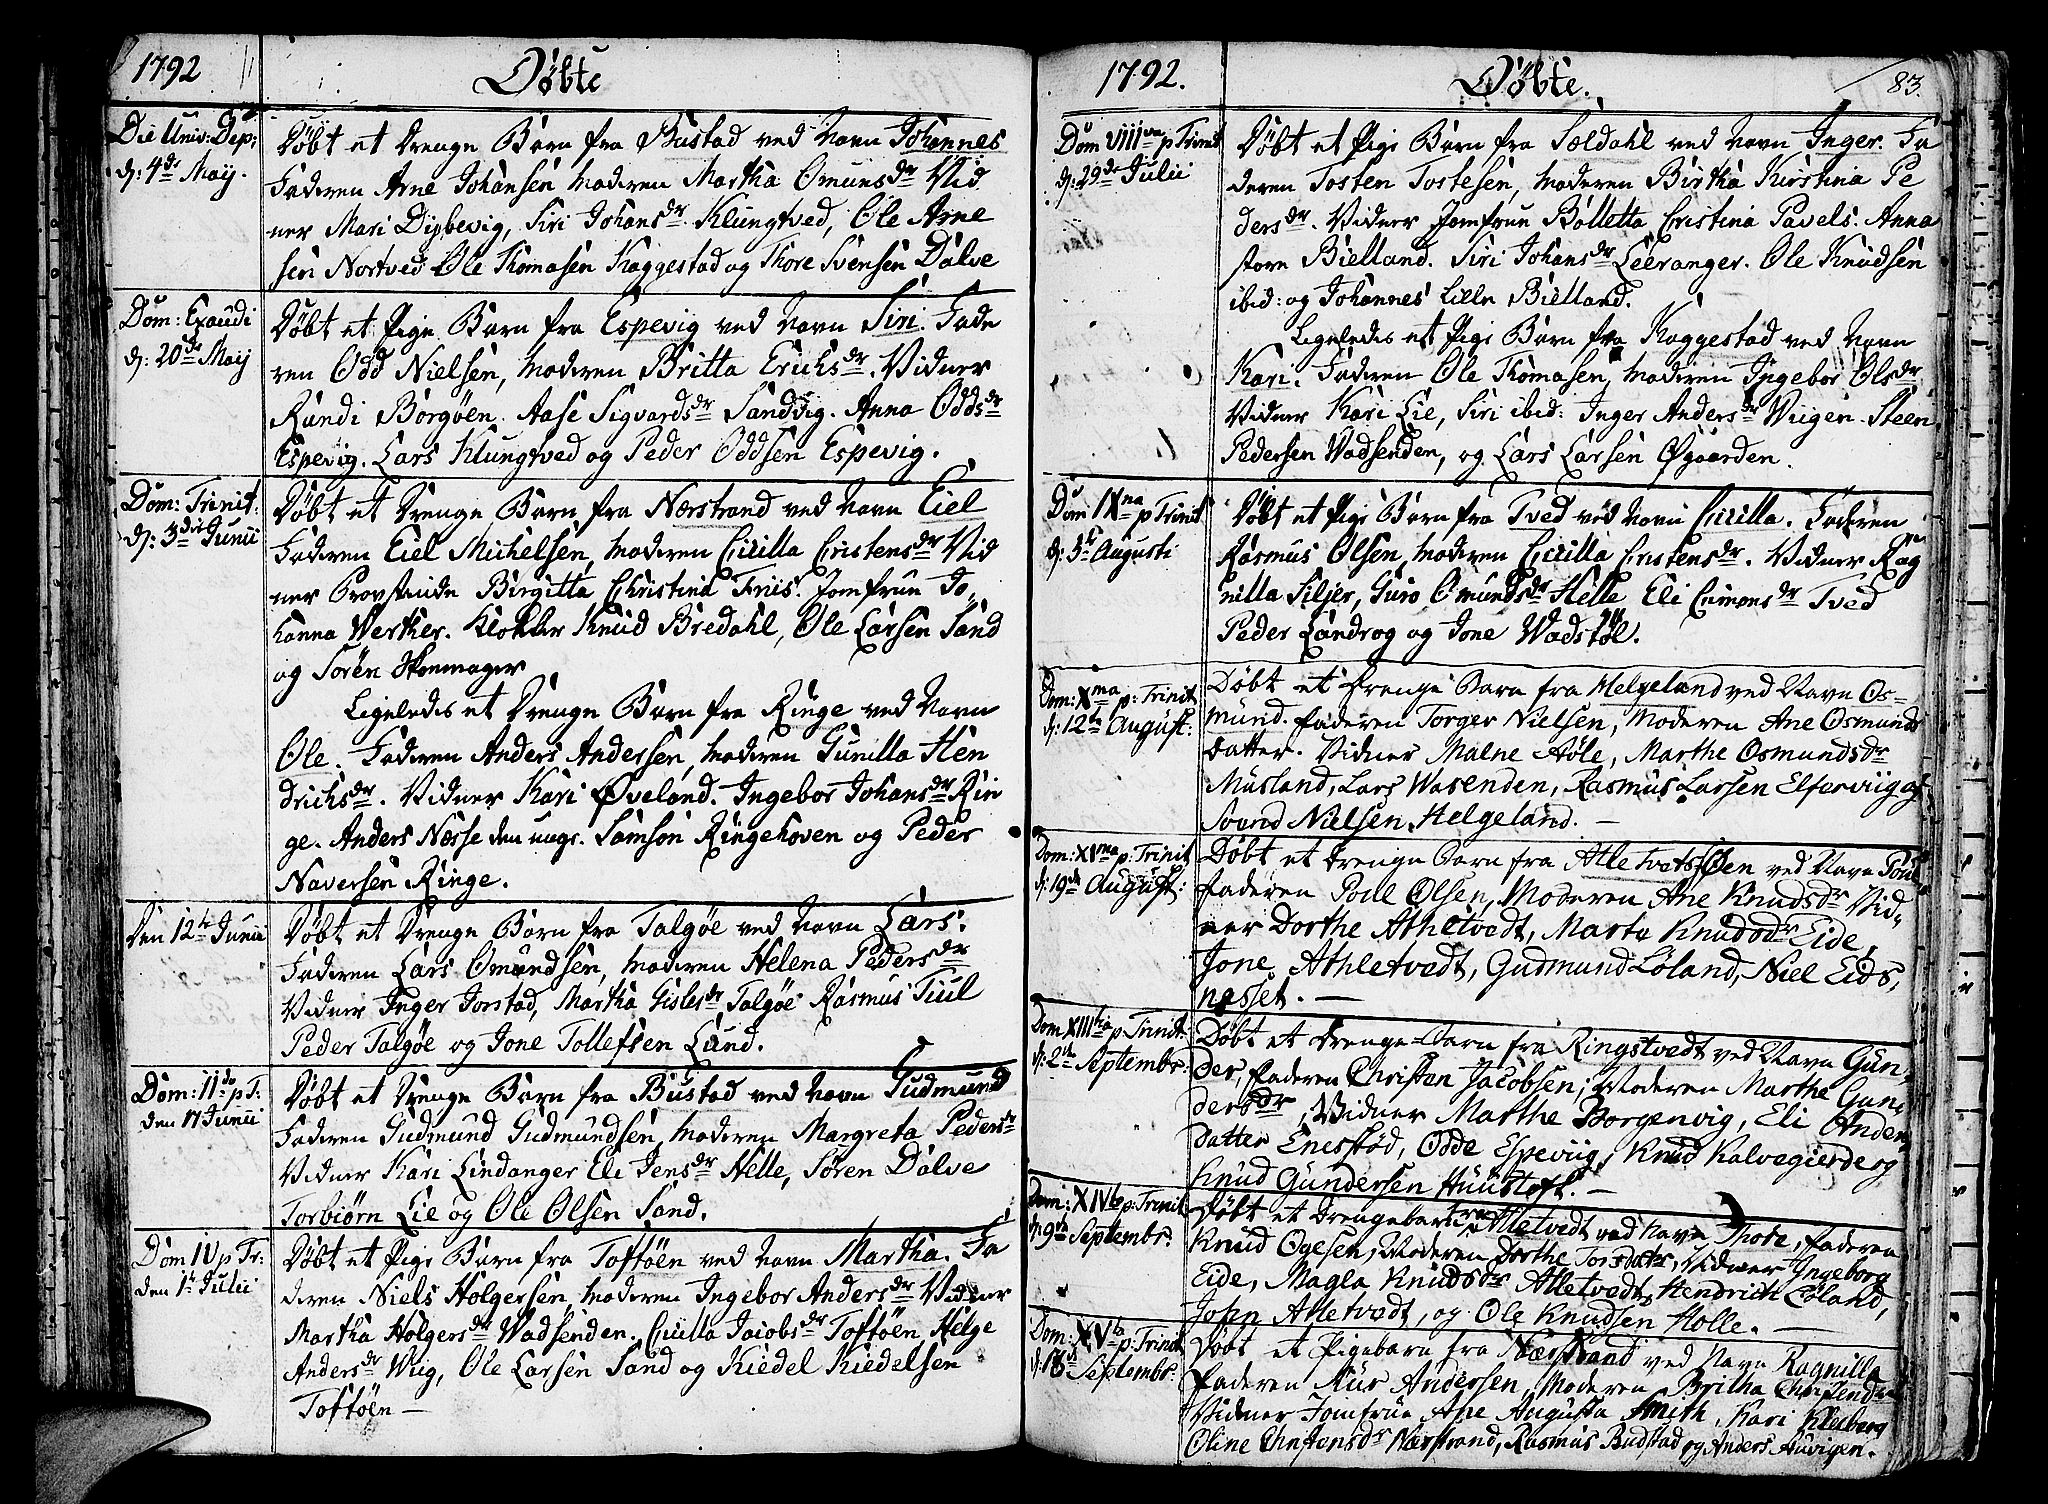 1792
Döbte
Die Univ: Dep:
d: 4de Maij.
Döbt et Drenge Barn fra Bustad ved Navn Johannes
Faderen Arne Johansen Moderen Martha Omunsdr Vid
ner Mari Dijbevig, Siri Johansdr Klungtved, Ole Arne
sen Nortved Ole Thomasen Kaggestad og Thore Svensen Dalve
Dom: Exaudi
d: 20de Maij
Döbt et Pige Barn fra Espevig ved Navn Siri. Fade
ren Odd Nielsen, Moderen Britta Erichsdr. Vidner
Randi Borgöen. Aase Sigvardsdr Sandvig. Anna Oddsdr
Espevig. Lars Klungtved og Peder Oddsen Espevig.
Dom: Trinit:
d: 3die Junii
Döbt et Drenge Barn fra Nærstrand ved Navn Eiel
Faderen Eiel Michelsen, Moderen Cicilla Cristensdr Vid
ner Provstinde Birgitta Christina Friis. Jomfrue Jo
hanna Werker. Klokker Knud Bredahl, Ole Larsen Sand
og Sören Skomager
Ligeledis et Drenge Barn fra Ringe ved Navn
Ole. Faderen Anders Andersen, Moderen Gunilla Hen
drichsdr. Vidner Kari Öveland. Ingebor Johansdr Rin
ge. Anders Næsse den unge. Samson Ringehoven og Peder
Naversen Ringe.
Den 12te Junii
Döbt et Drenge Barn fra Talgöe ved Navn Lars.
Faderen Lars Omundsen, Moderen Helena Pedersdr
Vidner Inger Jorstad, Martha Gislesdr Talgöe Rasmus Tiul
Peder Talgöe og Jone Tollefsen Lund.
Dom: IIda p T:
den 17 Junii
Döbt et Drenge Barn fra Bustad ved Navn Gudmund
Faderen Gudmund Gudmundsen, Moderen Margreta Pedersdr
Vidner Kari Lindanger Eli Jensdr Helle, Sören Dalve
Torbiörn Lie og Ole Olsen Sand.
Dom IV p Tr:
den 1te Julii
Döbt et Pige Barn fra Toftöen ved Navn Martha. Fa
deren Niels Holgersen, Moderen Ingebor Andersdr Vidner
Martha Holgersdr Wadsenden. Cicilla Jacobsdr Toftöen Helge
Andersdr Wiig, Ole Larsen Sand og Kiedel Kiedelsen
Toftöen –
1792.
Döbte.
83.
Dom VIIIva p Trinit
d: 29de Julii
Döbt et Pige Barn fra Sældahl ved Navn Inger. Fa
deren Tosten Tostesen, Moderen Birtha Kirstina Pe
dersdr. Vidner Jomfrue Bolletta Cristina Pavels. Anna
store Bielland. Siri Johansdr Leeranger. Ole Knudsen
ibid: og Johannes lille Bielland.
Ligeledis et Pige Barn fra Kaggestad ved Navn
Kari. Faderen Ole Thomasen, Moderen Ingebor Olsdr
Vidner Kari Lie, Siri ibid: Inger Andersdr Wiigen. Steen
Pedersen Wadsenden, og Lars Larsen Øgaarden.
Dom IXna p Trinit
d: 5te Augusti
Döbt et Pige Barn fra Tved ved Navn Cicilla. Faderen
Rasmus Olsen, Moderen Cicilla Cristensdr. Vidner Rag
nilla Siljer, Guro Omundsdr Helle Eli Cnimonsdr Tved
Peder Landrog og Jone Wadstöl.
Dom: Xma p: Trinit
d: 12te August:
Döbt et Drenge Barn fra Helgeland ved Navn Os-
mund. Faderen Torger Nielsen, Moderen Ane Osmunds
Datter. Vidner Malne Höle, Marthe Osmundsdr
Musland, Lars Wasenden, Rasmus Larsen Elferviig og
Svend Nielsen Helgeland. –
Dom: XIma p: Trinit
d: 19de August:
Döbt et Drenge Barn fra Atletvetseien ved Navn Poul
Faderen Poul Olsen, Moderen Ane Knudsdr Vid-
ner Dorthe Athletvedt, Marte Knudsdr Eide,
Jone Athletvedt, Gudmund Löland, Niel Eids,
nesset. –
Dom XIIItia p: Trinit:
d: 2den Septembr:
Döbt et Drenge-Barn fra Ringstvedt ved Navn Gun,
der, Faderen Christen Jacobsen; Moderen Marthe Gun,
dersdr, Vidner Marthe Borgenvig, Eli Anders
Datter Enesstød, Odde Espeviig, Knud Kalvegierde og
Knud Gundersen Huustoft. –
Dom: XIVta p: Trinit:
d: 9de Septembr:
Döbt et Drengebarn fra Atletvedt ved Navn Thore, Faderen
Knud Ogesen, Moderen Dorthe Torsdatr, Vidner Ingeborg
Eide, Magla Knudsdr Atletvedt, Hendrich Löland,
John Atletvedt, og Ole Knudsen Holle. –
Dom: XVta p: Trinit
d: 16de Septembr:
Döbt et Pigebarn fra Nærstrand ved Navn Ragnilla
Faderen Aus Andersen, Moderen Britha Christensdr
Vidner Jomfrue Ane Augusta Smith, Kari Kleiberg
Oline Christensdr Nærstrand, Rasmus Budstad og Anders Auvigen.